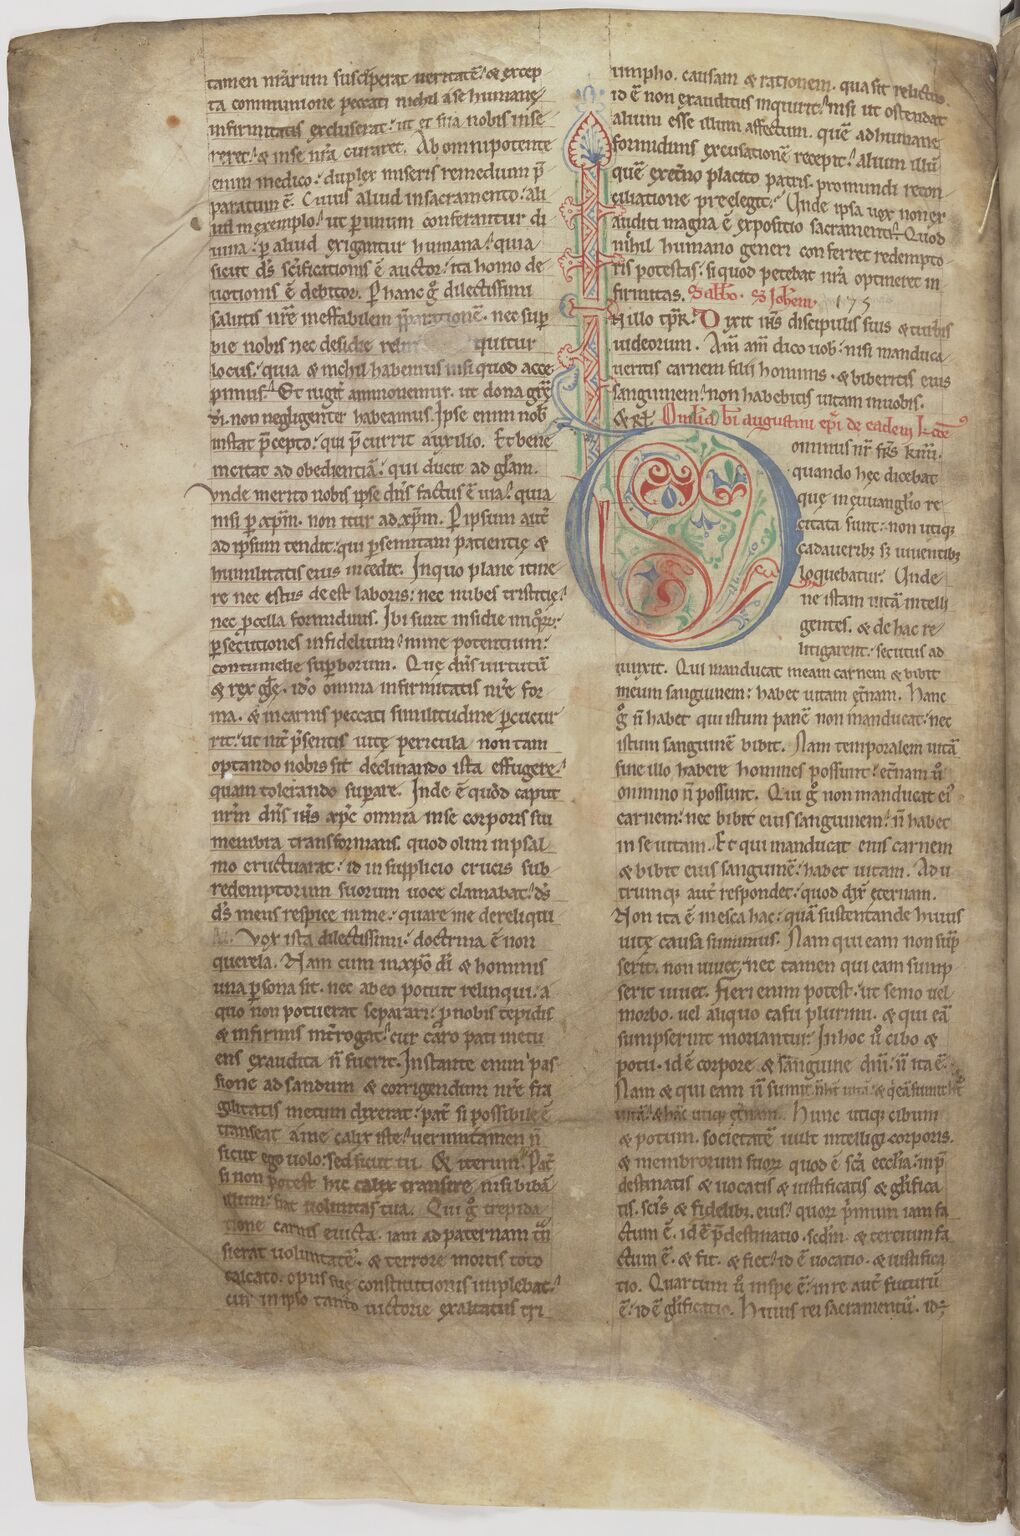 tamen nr̄arum susciperat ueritatē. & excep
ta communione peccati nichil a se humane
infirmitatis excluserat. ut et sua nobis inse
reret. & in se nr̄a curaret. Ab omnipotente
enim medico. duplex miseris remedium p̄
paratum ē. Cuius aliud in sacramento. ali
ud in exemplo. ut p unum conferantur di
uina. p aliud exigantur humana. quia
sicut ds̄ sc̄ificationis ē auctor. ita homo de
uotionis ē debitor. P hanc g̊ dilectissimi
salutis nr̄e ineffabilem p̄parationē. nec sup
bie nobis nec desidie relin quitur
locus. quia & nichil habemus nisi quod acce
pimus. Et iugit̄ ammonemur. ut dona gr̄e
dī. non negligenter habeamus. Ipse enim nob̄
instat p̄cepto. qui p̄currit auxilio. Et bene
incitat ad obedientiā. qui ducit ad gl̄am.
Vnde merito nobis ipse dn̄s factus ē uia. quia
nisi p xp̄m. non itur ad xp̄m. P ipsum aut̄
ad ipsum tendit. qui p semitam patientię &
humilitatis eius incedit. In quo plane itine
re nec estus deest laboris. nec nubes tristitię.
nec pcella formidinis. Ibi sunt insidie iniquoꝝ.
psecutiones infidelium. mine potentium.
contumelie superborum. Quę dn̄s uirtutū
& rex gl̄e. id̊o omnia in infirmitatis nr̄e for
ma. & in carnis peccati similitudine pcucur
rit. ut int̄ p̄sentis uitę pericula non tam
optando nobis sit declinando ista effugere.
quam tolerando supare. Inde ē quod caput
nr̄m dn̄s ih̄s xp̄c omnia in se corporis sui
membra transformans. quod olim in psal
mo eructuarat. id in supplicio crucis sub
redemptorum suorum uoce clamabat. ds̄
ds̄ meus respice in me. quare me dereliqui
Vox ista dilectissimi. doctrina ē non
querela. Nam cum in xp̄o dī & hominis
una psona sit. nec ab eo potuit relinqui. a
quo non potuerat separari. p nobis trepidis
& infirmis int̄rogat. cur caro pati metu
ens exaudita n̄ fuerit. Instante enim pas
sione ad sanandum & corrigendum nr̄e fra
gilitatis metum dixerat. pat̄ si possibile ē
transeat a me calix iste. uerumtamen n̄
sicut ego uolo. sed sicut tu. & iterum. Pat̄
si non potest hic calix transire nisi bibā
illum. fiat uoluntas tua. Qui g̊ trepida
tione carnis euicta. iam ad paternam tn̄
sierat uoluntatē. & terrore mortis toto
calcato. opus sue constitutionis implebat.
cur in ipso tanto uictorie exaltatus tri
umpho. causam & rationem. qua sit relictus.
id ē non exauditus inquirit. nisi ut ostendat
alium esse illum affectum. quē ad humane
formidinis excusationē recepit. alium illū
quē ex et̄no placito patris. pro mundi recon
ciliatione preelegit. Unde ipsa uox non ex
auditi magna ē expositio sacramenti. Quod
nihil humano generi conferret redempto
ris potestas. si quod petebat nr̄a optineret in
firmitas. Sabb̄o. S̄ Joh̄em. 175
N illo tp̄r. Dixit ih̄s discipulis suis & turbis
iudeorum. Am̄ am̄ dico uob̄. nisi manduca
ueritis carnem filij hominis. & biberitis eius
sanguinem. non habebitis uitam in uobis.
& rl̄. Omel̄ia bī augustini ep̄i de eadem l̄ctē
ominus nr̄ fr̄s km̄i.
quando hęc dicebat
quę in euuangl̄io re
citata sunt. non utiq;
cadaueribꝫ sꝫ uiuentibꝫ
loquebatur. Unde
ne istam uitā intelli
gentes. & de hac re
litigarent. secutus ad
iunxit. Qui manducat meam carnem & bibit
meum sanguinem. habet uitam et̄nam. Hanc
g̊ n̄ habet qui istum panē non manducat. nec
istum sanguinē bibit. Nam temporalem uitā
sine illo habere homines possunt. et̄nam ů
omnino n̄ possunt. Qui g̊ non manducat ei᾽
carnem. nec bibit eius sanguinem. n̄ habet
in se uitam. Et qui manducat eius carnem
& bibit eius sanguinē. habet uitam. Ad u
trumq; aut̄ respondet. quod dix̄ ęternam.
Non ita ē in esca hac. quā sustentande huius
uitę causa sumimus. Nam qui eam non sūp
serit. non uiuet. nec tamen qui eam sump
serit uiuet. Fieri enim potest. ut senio uel
morbo. uel aliquo casu plurimi. & qui eā
sumpserint moriantur. In hoc ů cibo &
potu. id ē corpore & sanguine dn̄i. n̄ ita ē.
Nam & qui eam n̄ sumit n̄ h̄t uitā. & q̇ eā sumit h̄t
uitā. & hāc utiq; et̄nam. Hunc itiq; cibum
& potum. societatē uult intelligi corporis.
& membrorum suoꝝ quod ē sc̄a eccl̄ia. in p̄
destinatis & uocatis & iustificatis & gl̄ifica
tis. sc̄is & fidelibꝫ eius. quoꝝ p̄mum iam fa
ctum ē. id ē p̄destinatio. sedm̄. & tercium fa
ctum ē. & fit. & fiet. id ē uocatio. & iustifica
tio. Quartum ů in spe ē. in re aut̄ futurū
ē. id ē gl̄ificatio. Huius rei sacramentū. id ē